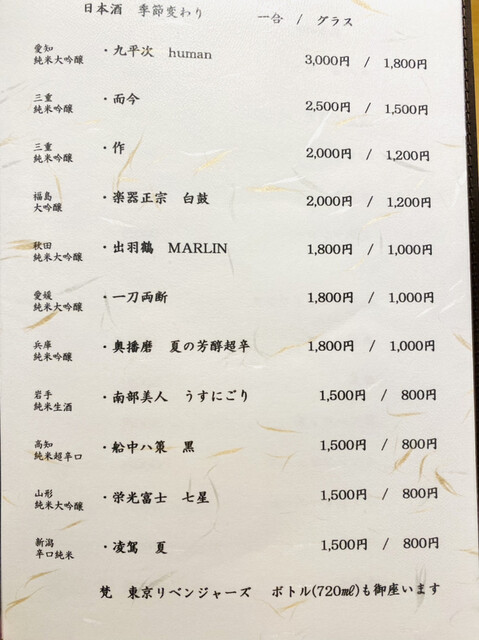 日本酒 季節変わり 一合 / グラス
愛知
純米大吟醸 ・九平次 human 3,000円 / 1,800円
三重
純米吟醸 ・而今 2,500円 / 1,500円
三重
純米吟醸 ・作 2,000円 / 1,200円
福島
大吟醸 ・楽器正宗 白鼓 2,000円 / 1,200円
秋田
純米大吟醸 ・出羽鶴 MARLIN 1,800円 / 1,000円
愛媛
純米大吟醸 ・一刀両断 1,800円 / 1,000円
兵庫
純米吟醸 ・奥播磨 夏の芳醇超辛 1,800円 / 1,000円
岩手
純米生酒 ・南部美人 うすにごり 1,500円 / 800円
高知
純米超辛口 ・船中八策 黒 1,500円 / 800円
山形
純米大吟醸 ・栄光富士 七星 1,500円 / 800円
新潟
辛口純米 ・凌駕 夏 1,500円 / 800円
梵 東京リベンジャーズ ボトル(720㎖)も御座います